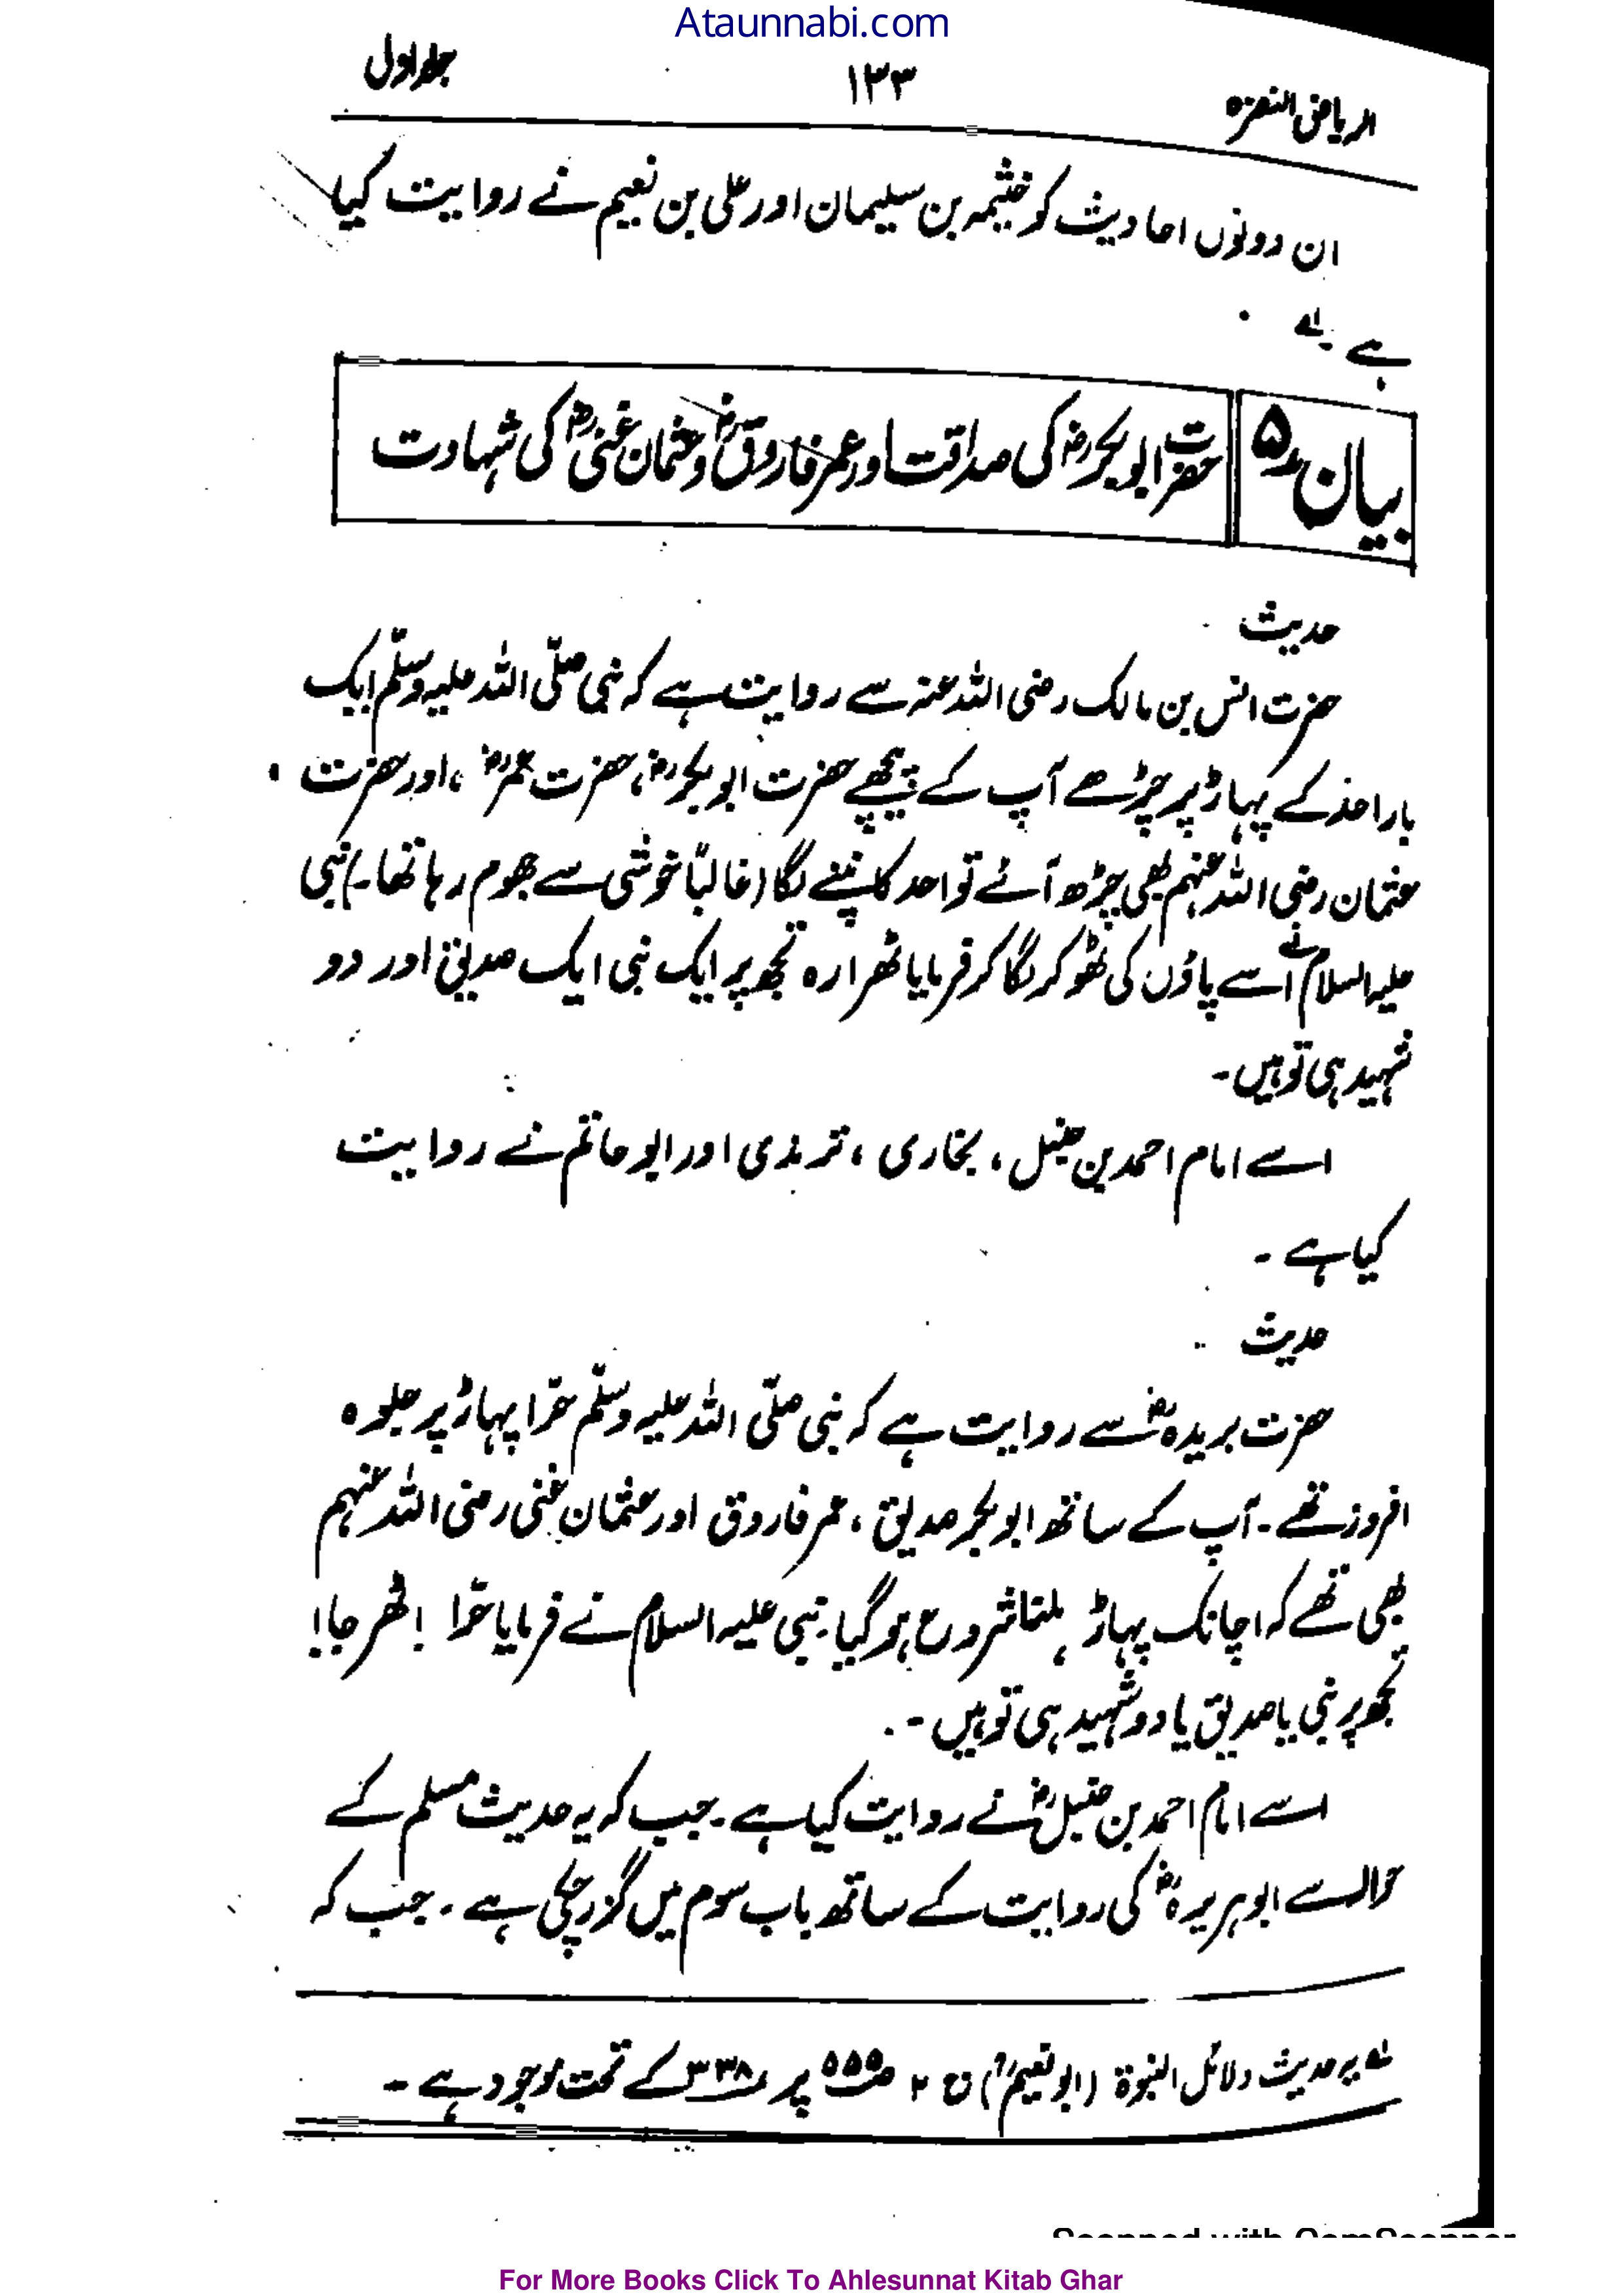 Ataunnabi.com
الریاض النضرہ ۱۲۳ جلد اول
ان دونوں احادیث کو خیثمہ بن سلیمان اور علی بن نعیم نے روایت کیا
ہے ۔ لہ
بیان ۵ حضرت ابوبکرؓ کی صداقت اور عمر فاروقؓ و عثمان غنیؓ کی شہادت
حدیث
حضرت انس بن مالک رضی اللہ عنہ سے روایت ہے کہ نبی صلّی اللہ علیہ وسلّم ایک
بار احد کے پہاڑ پر چڑھے آپ کے پیچھے حضرت ابوبکرؓ، حضرت عمرؓ، اور حضرت
عثمان رضی اللہ عنہم بھی چڑھ آئے تو احد کانپنے لگا (غالباً خوشی سے جھوم رہا تھا۔) نبی
علیہ السلام نے اُسے پاؤں کی ٹھوکر لگا کر فرمایا ٹھرا رہ تجھ پر ایک نبی ایک صدیق اور دو
شہید ہی تو ہیں۔
اسے امام احمد بن حنبل، بخاری، ترمذی اور ابو حاتم نے روایت
کیا ہے ۔
حدیث
حضرت بریدہؓ سے روایت ہے کہ نبی صلّی اللہ علیہ وسلّم حرّا پہاڑ پر جلوہ
افروز تھے۔ آپ کے ساتھ ابوبکر صدیق، عمر فاروق اور عثمان غنی رضی اللہ عنہم
بھی تھے کہ اچانک پہاڑ ہلنا شروع ہو گیا۔ نبی علیہ السلام نے فرمایا حرّا ! ٹھر جا!
تجھ پر نبی یا صدیق یا دو شہید ہی تو ہیں ۔
اسے امام احمد بن حنبلؒ نے روایت کیا ہے۔ جب کہ یہ حدیث مسلم کے
حوالے سے ابوہریرہؓ کی روایت کے ساتھ باب سوم میں گزر چکی ہے ۔ جب کہ
لہ یہ حدیث دلائل النبوۃ (ابو نعیمؒ) ج ۲ ص ۵۵۵ پر ۳۳۸ کے تحت موجود ہے ۔
Scanned with CamScanner
For More Books Click To Ahlesunnat Kitab Ghar